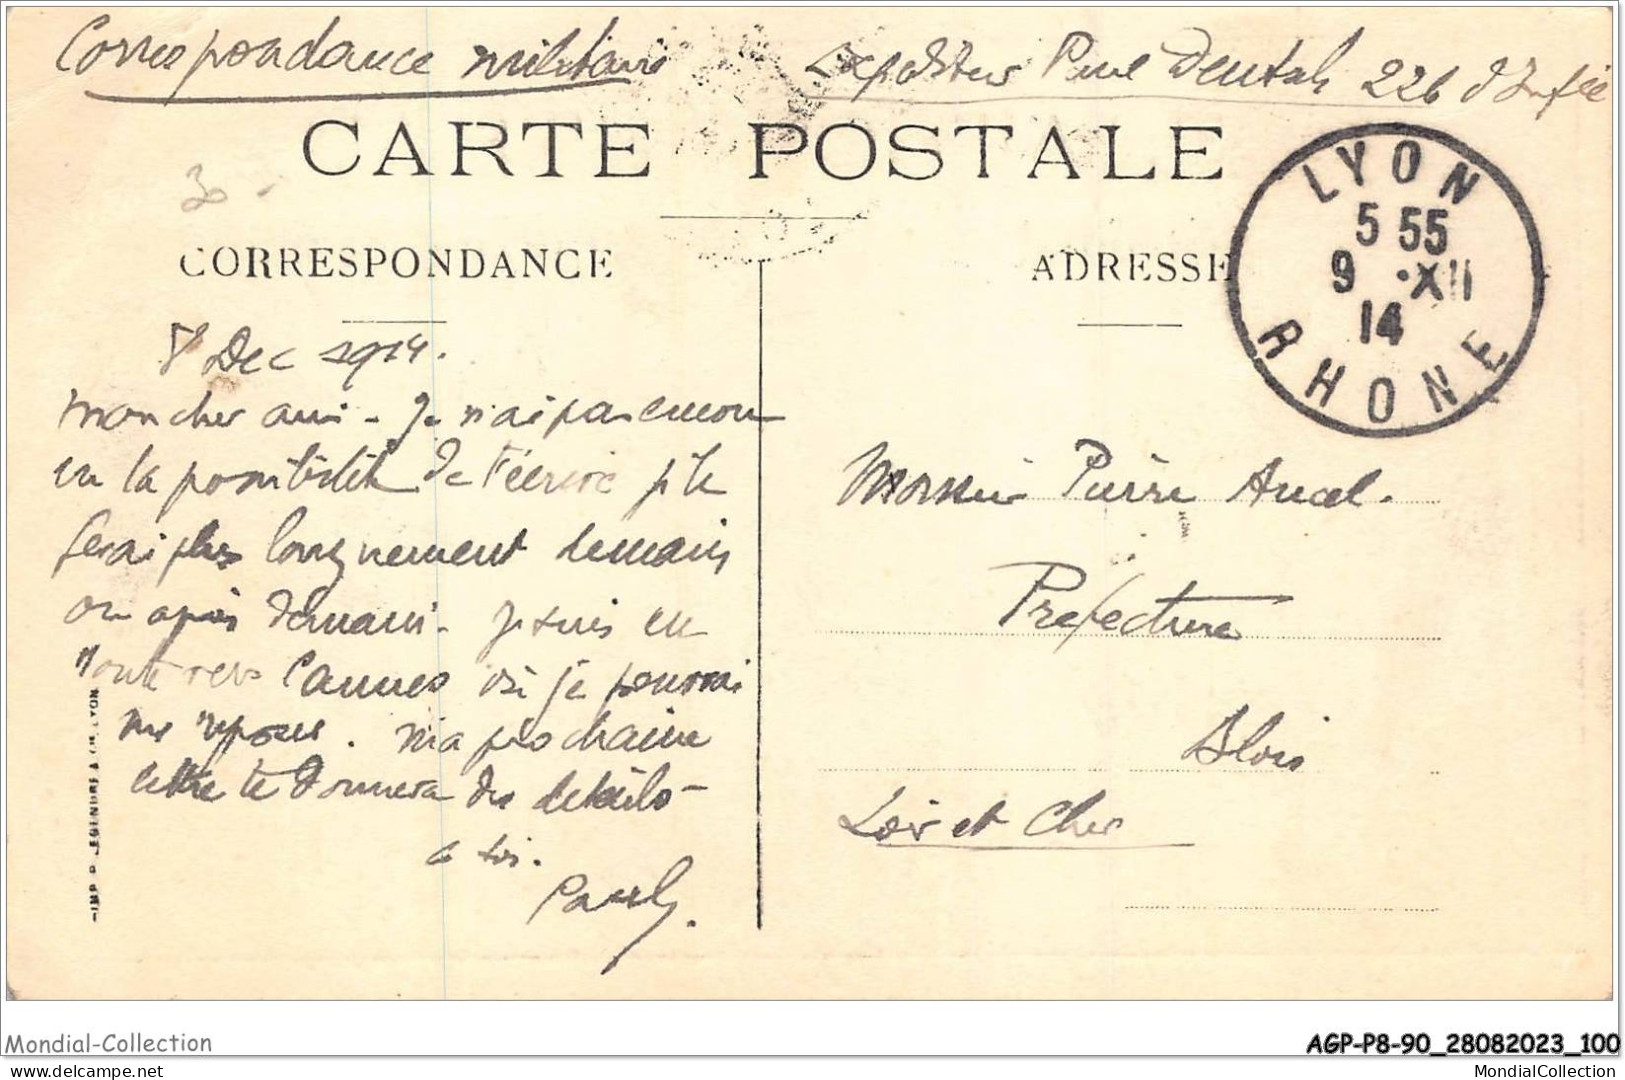 Correspondance militaire
Expéditeur 226 d'Inf ie
CARTE POSTALE
30
CORRESPONDANCE
ADRESSE
LYON
5 55
9 ·XII
14
RHONE
8 Dec 1914.
mon cher ami - Je n'ai pas encore
eu la possibilité de t'écrire je le
ferai plus longuement demain
ou après demain. Je suis en
route vers Cannes où je pourrai
me reposer. ma prochaine
lettre te donnera des détails -
à toi.
Monsieur Pierre Ancel.
Prefecture
Blois
Loir et Cher
IMP. P. LEGENDRE & Cie LYON
Mondial-Collection
AGP-P8-90_28082023_100
delcampe.net
MondialCollection